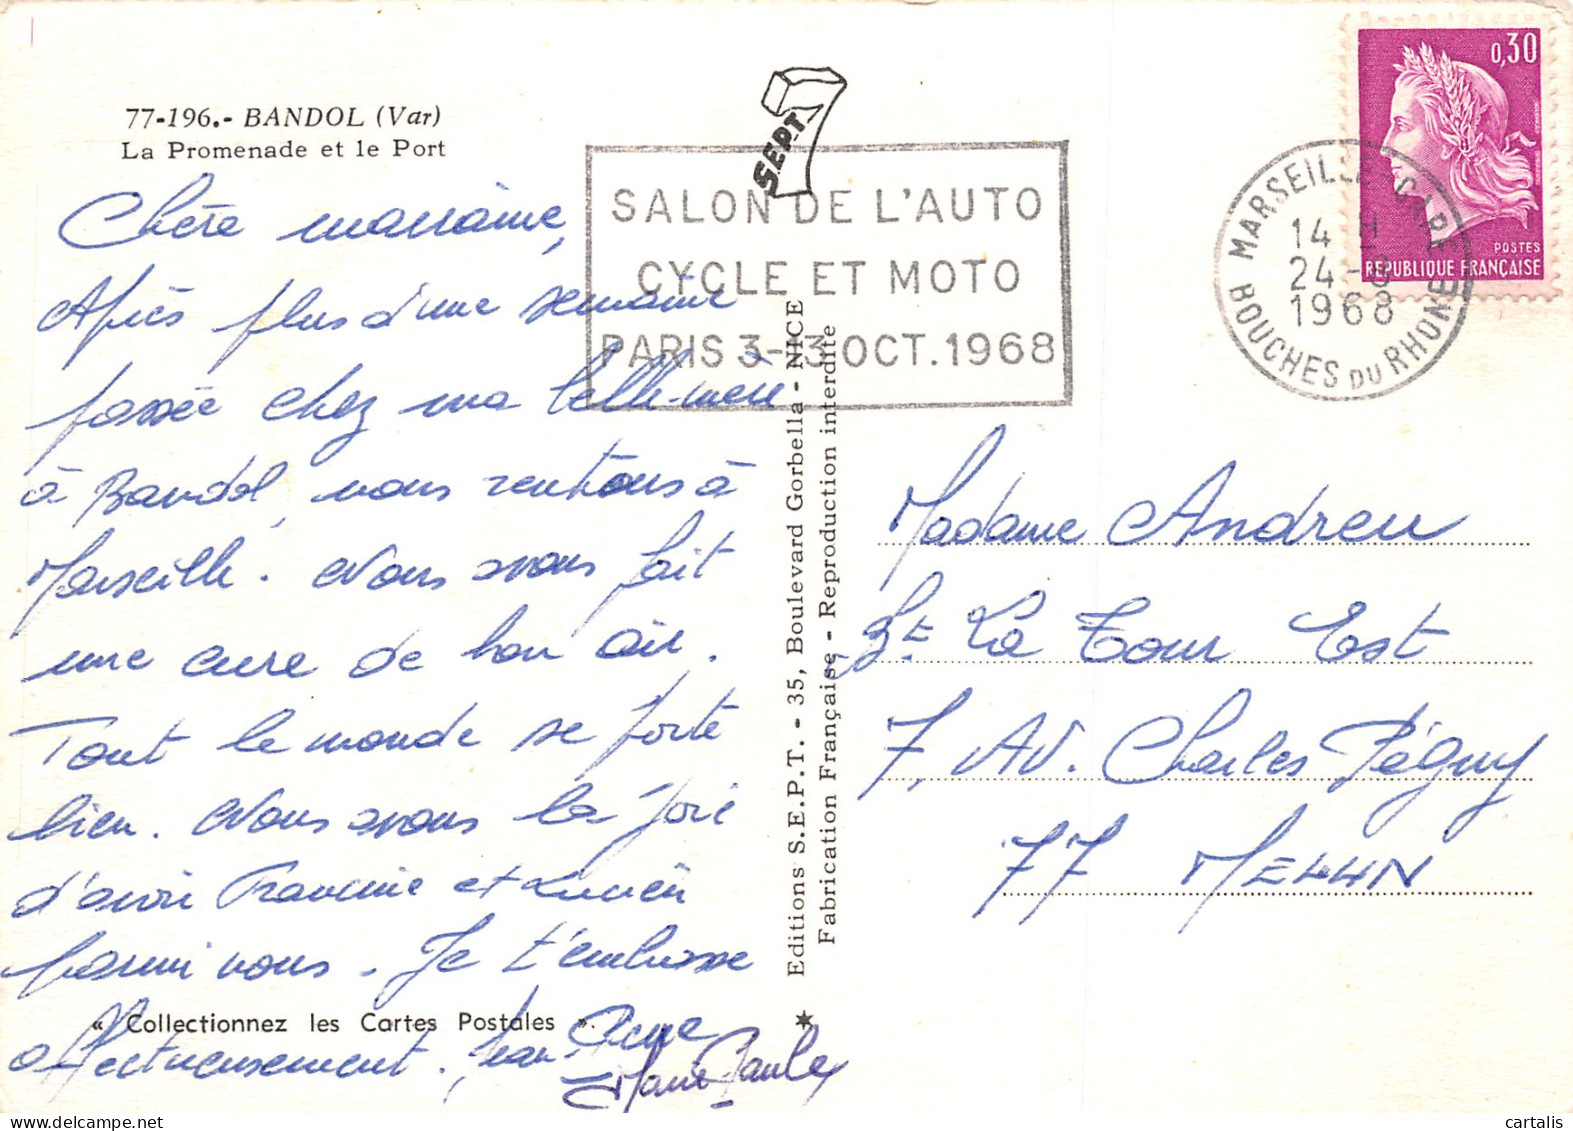 77-196.- BANDOL (Var)
La Promenade et le Port
Chère marraine,
Après plus d'une semaine
passée chez ma belle-mère
à Bandol, nous rentrons à
Marseille. Nous avons fait
une cure de bon air.
Tout le monde se porte
bien. Nous avons la joie
d'avoir Francine et Lucien
parmi nous. Je t'embrasse
« Collectionnez les Cartes Postales ».
affectueusement. Jean-Pierre
Marie-Paule
SEPT
SALON DE L'AUTO
CYCLE ET MOTO
PARIS 3-13 OCT. 1968
Editions S.E.P.T. - 35, Boulevard Gorbella - NICE
Fabrication Française - Reproduction interdite
0,30
POSTES
REPUBLIQUE FRANÇAISE
MARSEILLE-GARE
14 H
24-8
1968
BOUCHES DU RHONE
Madame Andreu
Bt La Tour Est
7, AV. Charles Péguy
77 MELUN
cartalis